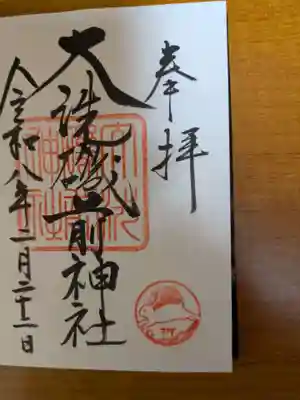 奉拝
大洗磯前神社
令和八年二月二十一日